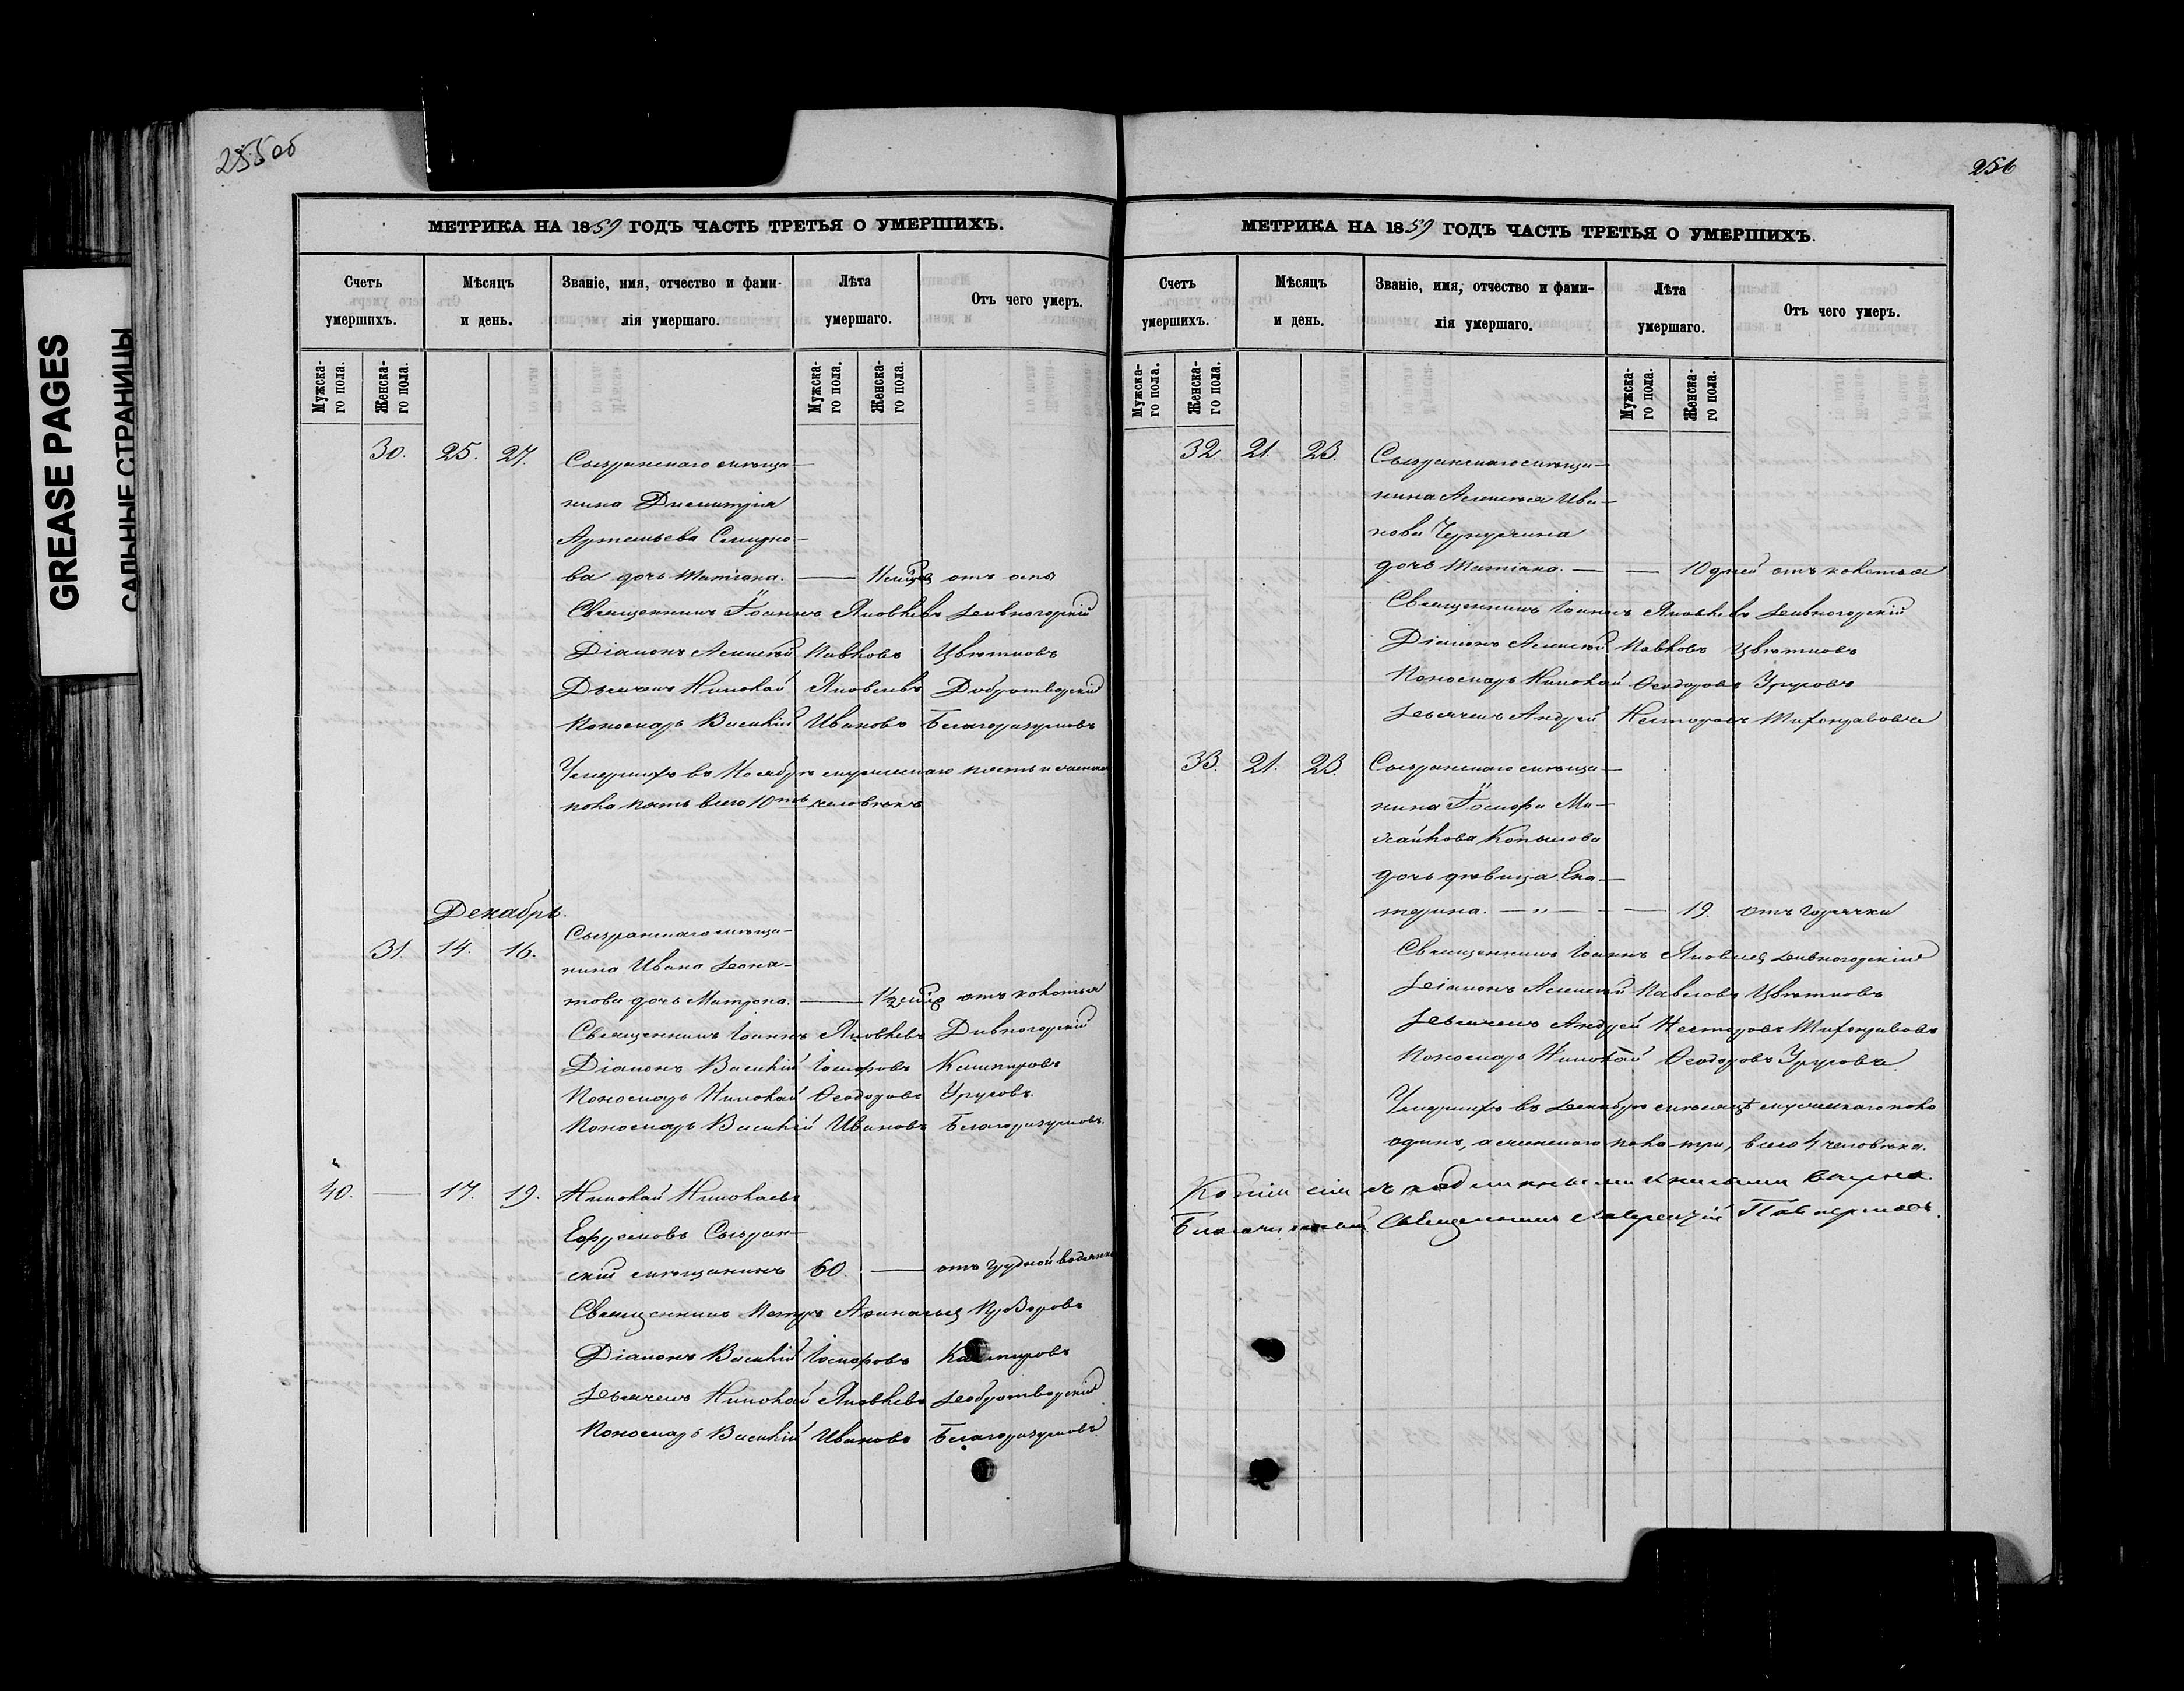 GREASE PAGES
САЛЬНЫЕ СТРАНИЦЫ
255об
МЕТРИКА НА 1859 ГОДЪ ЧАСТЬ ТРЕТЬЯ О УМЕРШИХЪ.
Счетъ умершихъ.
Мѣсяцъ и день.
Званіе, имя, отчество и фами-
лія умершаго.
Лѣта умершаго.
Отъ чего умеръ.
Мужска-
го пола.
Женска-
го пола.
Мужска-
го пола.
Женска-
го пола.
30. 25. 27. Сызранскаго мѣща-
нина Димитрія
Артемьева
ва дочь Татіана. — отъ оспы
Священникъ Іоаннъ Яковлевъ Дивногорскій
Діаконъ Алексѣй Павловъ Цвѣтковъ
Дьячекъ Николай Яковлевъ Добротворскій
Пономарь Василій Ивановъ Благоразумовъ
Умершихъ въ Ноябрѣ мужескаго пять и женска
пола пять всего 10ть человѣкъ
Декабрь.
31. 14. 16. Сызранскаго мѣща-
нина Ивана
дочь Матрона. — отъ колотья
Священникъ Іоаннъ Яковлевъ Дивногорскій
Діаконъ Василій Іосифовъ Кашпировъ
Пономарь Николай Ѳеодоровъ Уруловъ.
Пономарь Василій Ивановъ Благоразумовъ.
40. — 17. 19. Николай Николаевъ
Ефремовъ Сызран-
скій мѣщанинъ 60. — отъ грудной водянки
Священникъ Петръ Афанасьев
Діаконъ Василій Іосифовъ Кашпировъ
Дьячекъ Николай Яковлевъ Добротворскій
Пономарь Василій Ивановъ Благоразумовъ
256
МЕТРИКА НА 1859 ГОДЪ ЧАСТЬ ТРЕТЬЯ О УМЕРШИХЪ.
Счетъ умершихъ.
Мѣсяцъ и день.
Званіе, имя, отчество и фами-
лія умершаго.
Лѣта умершаго.
Отъ чего умеръ.
Мужска-
го пола.
Женска-
го пола.
Мужска-
го пола.
Женска-
го пола.
32. 21. 23. Сызранскаго мѣща-
нина Алексѣя Ива-
нова
дочь Татіана. — — 10 дней отъ колотья
Священникъ Іоаннъ Яковлевъ Дивногорскій
Діаконъ Алексѣй Павловъ Цвѣтковъ
Пономарь Николай Ѳеодоровъ Уруловъ
Дьячекъ Андрей Несторовъ
33. 21. 23. Сызранскаго мѣща-
нина Іосифа Ми-
хайлова Копылова
дочь дѣвица Ека-
терина. — „ — - — 19. отъ горячки
Священникъ Іоаннъ Яковлев Дивногорскій
Діаконъ Алексѣй Павловъ Цвѣтковъ
Дьячекъ Андрей Несторовъ
Пономарь Николай Ѳеодоровъ Уруловъ.
Умершихъ въ Декабрѣ мѣсяцѣ мужескаго пола
одинъ, а женскаго пола три, всего 4 человѣка.
Копіи сіи съ подлинными книгами вѣрна.
Благочинный Священникъ Лаврентій